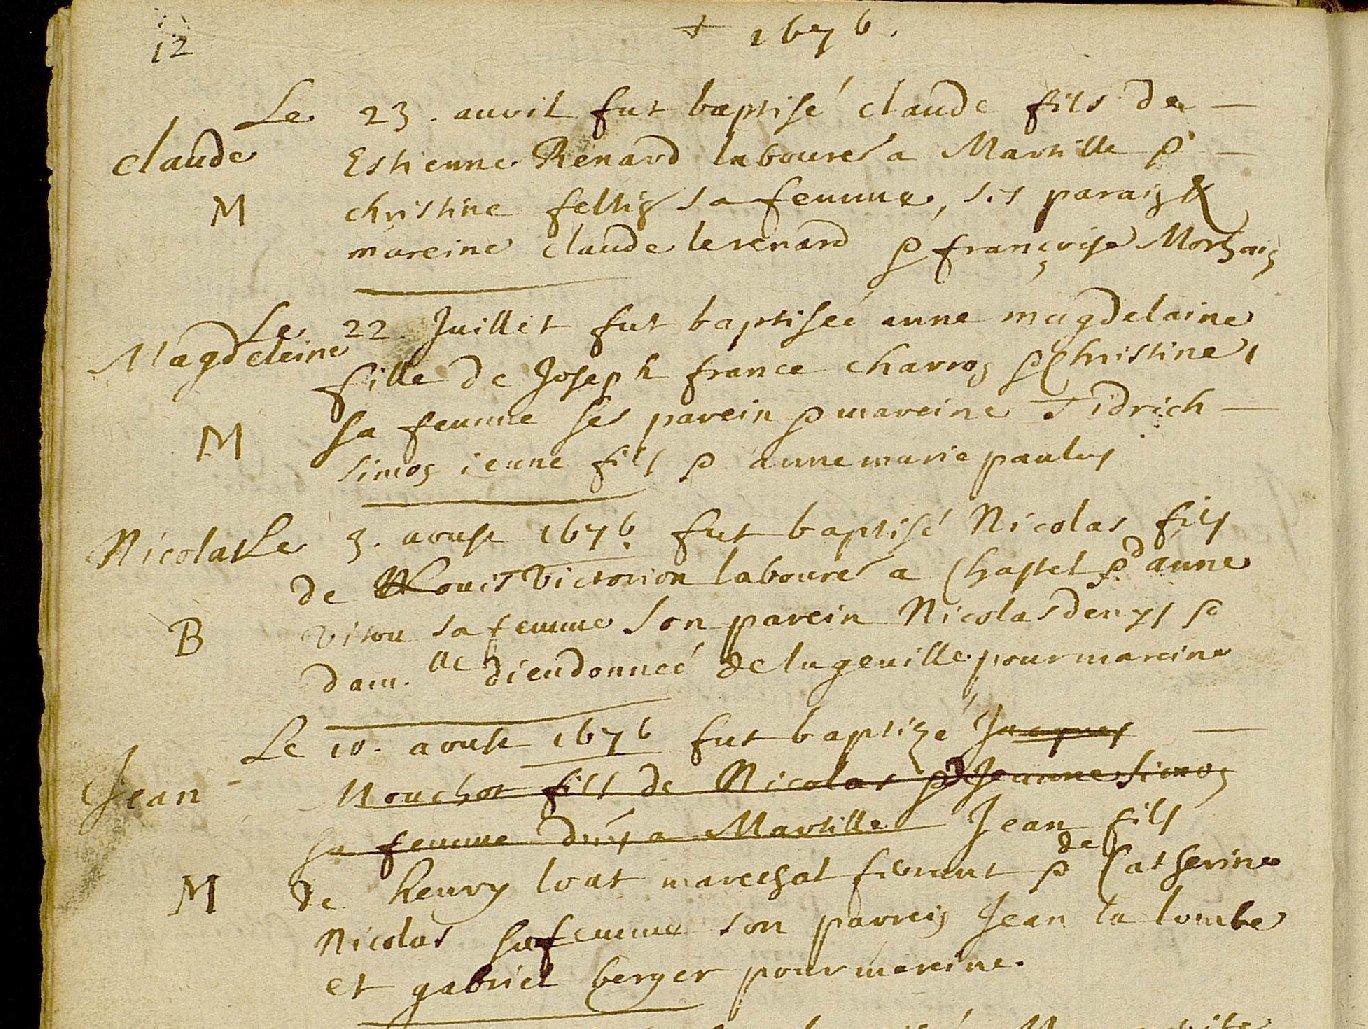 12
+ 1676.
Le 23. auril fut baptisé claude fils de
claude
Estienne Renard laboure' a Martille &
M
christine felliz sa femme, ses parain &
mareine claude le renard & françoise
Le 22. Juillet fut baptiseé anne magdelaine
Magdeleine
fille de Joseph france & Christine,
M
sa femme ses parein & mareine Fidrich
simon ieune fils & anne marie paulus
Nicolas Le 3. aoust 1676. fut baptisé Nicolas fils
de Louis Victorion laboure' a Chastel & d'anne
B
sa femme son parein Nicolas denys &
dam.lle dieudonneé de lageuille pour mareine
Le 10. aoust 1676 fut baptize Jacques
Jean
Mouchot fils de Nicolas & Jeanne Simon
sa femme du'y a Martille Jean fils
de henry lout marechal ferrant & de Catherine
M
Nicolas sa femme son parrein Jean la lombe
et gabriel berger pour mareine.